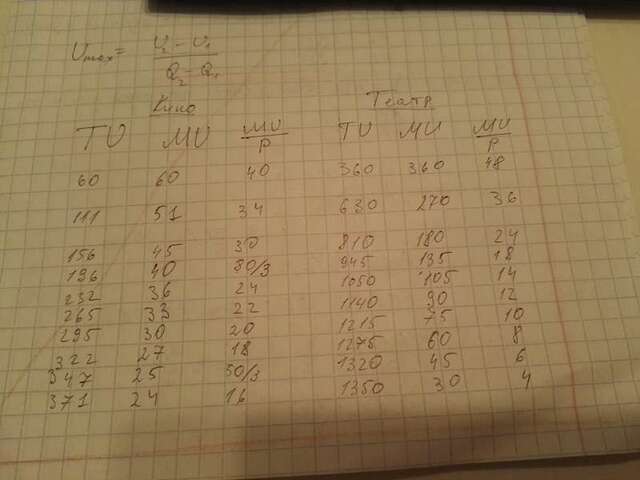 Umax = (U₂ - U₁) / (Q₂ - Q₁)
Кино Театр
TU MU MU/P TU MU MU/P
60 60 40 360 360 48
111 51 34 630 270 36
156 45 30 810 180 24
196 40 80/3 945 135 18
232 36 24 1050 105 14
265 33 22 1140 90 12
295 30 20 1215 75 10
322 27 18 1275 60 8
347 25 50/3 1320 45 6
371 24 16 1350 30 4